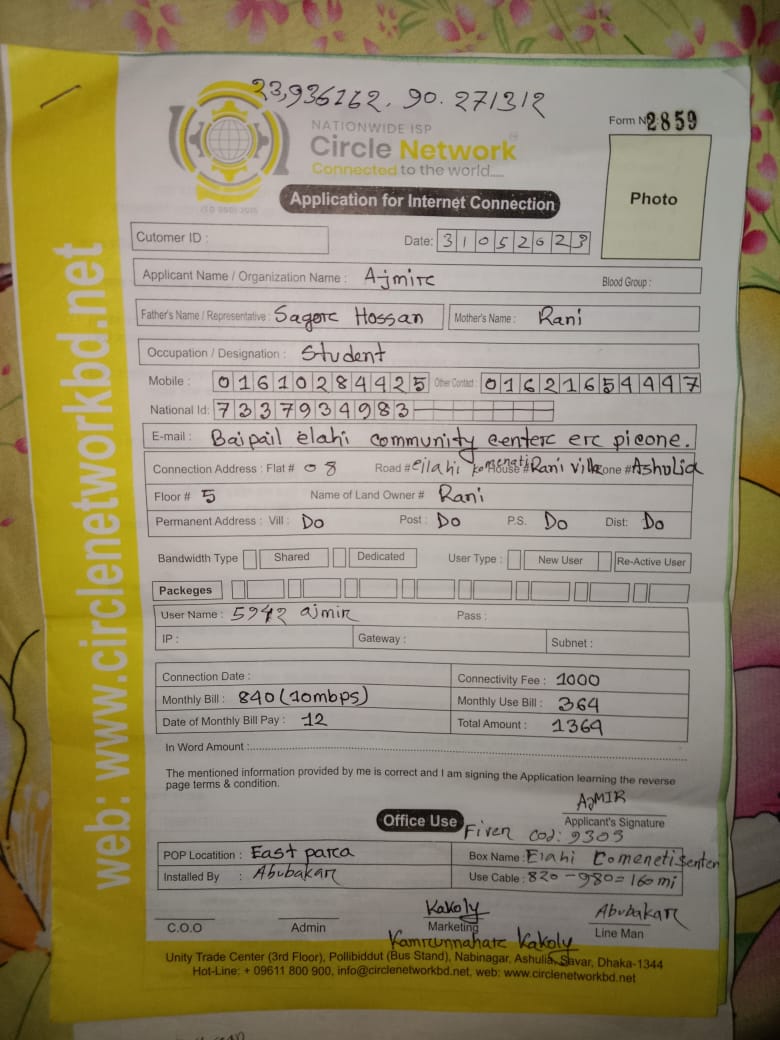 23,936162, 90.271312
NATIONWIDE ISP
Circle Network
Connected to the world.....
Form No 2859
Photo
Application for Internet Connection
Cutomer ID :
Date: 31052023
Applicant Name / Organization Name : Ajmir
Blood Group :
Father's Name / Representative : Sagor Hossan
Mother's Name : Rani
Occupation / Designation : Student
Mobile : 01610284425 Other Contact : 01621654447
National Id: 7337934983
E-mail : Baipail elahi community center er pione.
Connection Address : Flat # 08 Road # eilahi House # Rani villa Zone # Ashulia
Floor # 5 Name of Land Owner # Rani
Permanent Address : Vill : Do Post : Do P.S. Do Dist: Do
Bandwidth Type Shared Dedicated User Type : New User Re-Active User
Packeges
User Name : 5942 ajmir Pass :
IP : Gateway : Subnet :
Connection Date : Connectivity Fee : 1000
Monthly Bill : 840 (10mbps) Monthly Use Bill : 364
Date of Monthly Bill Pay : 12 Total Amount : 1364
In Word Amount :
The mentioned information provided by me is correct and I am signing the Application learning the reverse
page terms & condition.
AJMIR
Applicant's Signature
Office Use
Fiver Cod: 9303
POP Locatition : East para Box Name : Elahi Comeneti Senter
Installed By : Abubakar Use Cable : 820 - 980 = 160 mi
Kakoly Abubakar
C.O.O Admin Marketing Line Man
Kamrunnahar Kakoly
Unity Trade Center (3rd Floor), Pollibiddut (Bus Stand), Nabinagar, Ashulia, Savar, Dhaka-1344
Hot-Line: + 09611 800 900, info@circlenetworkbd.net, web: www.circlenetworkbd.net
web: www.circlenetworkbd.net